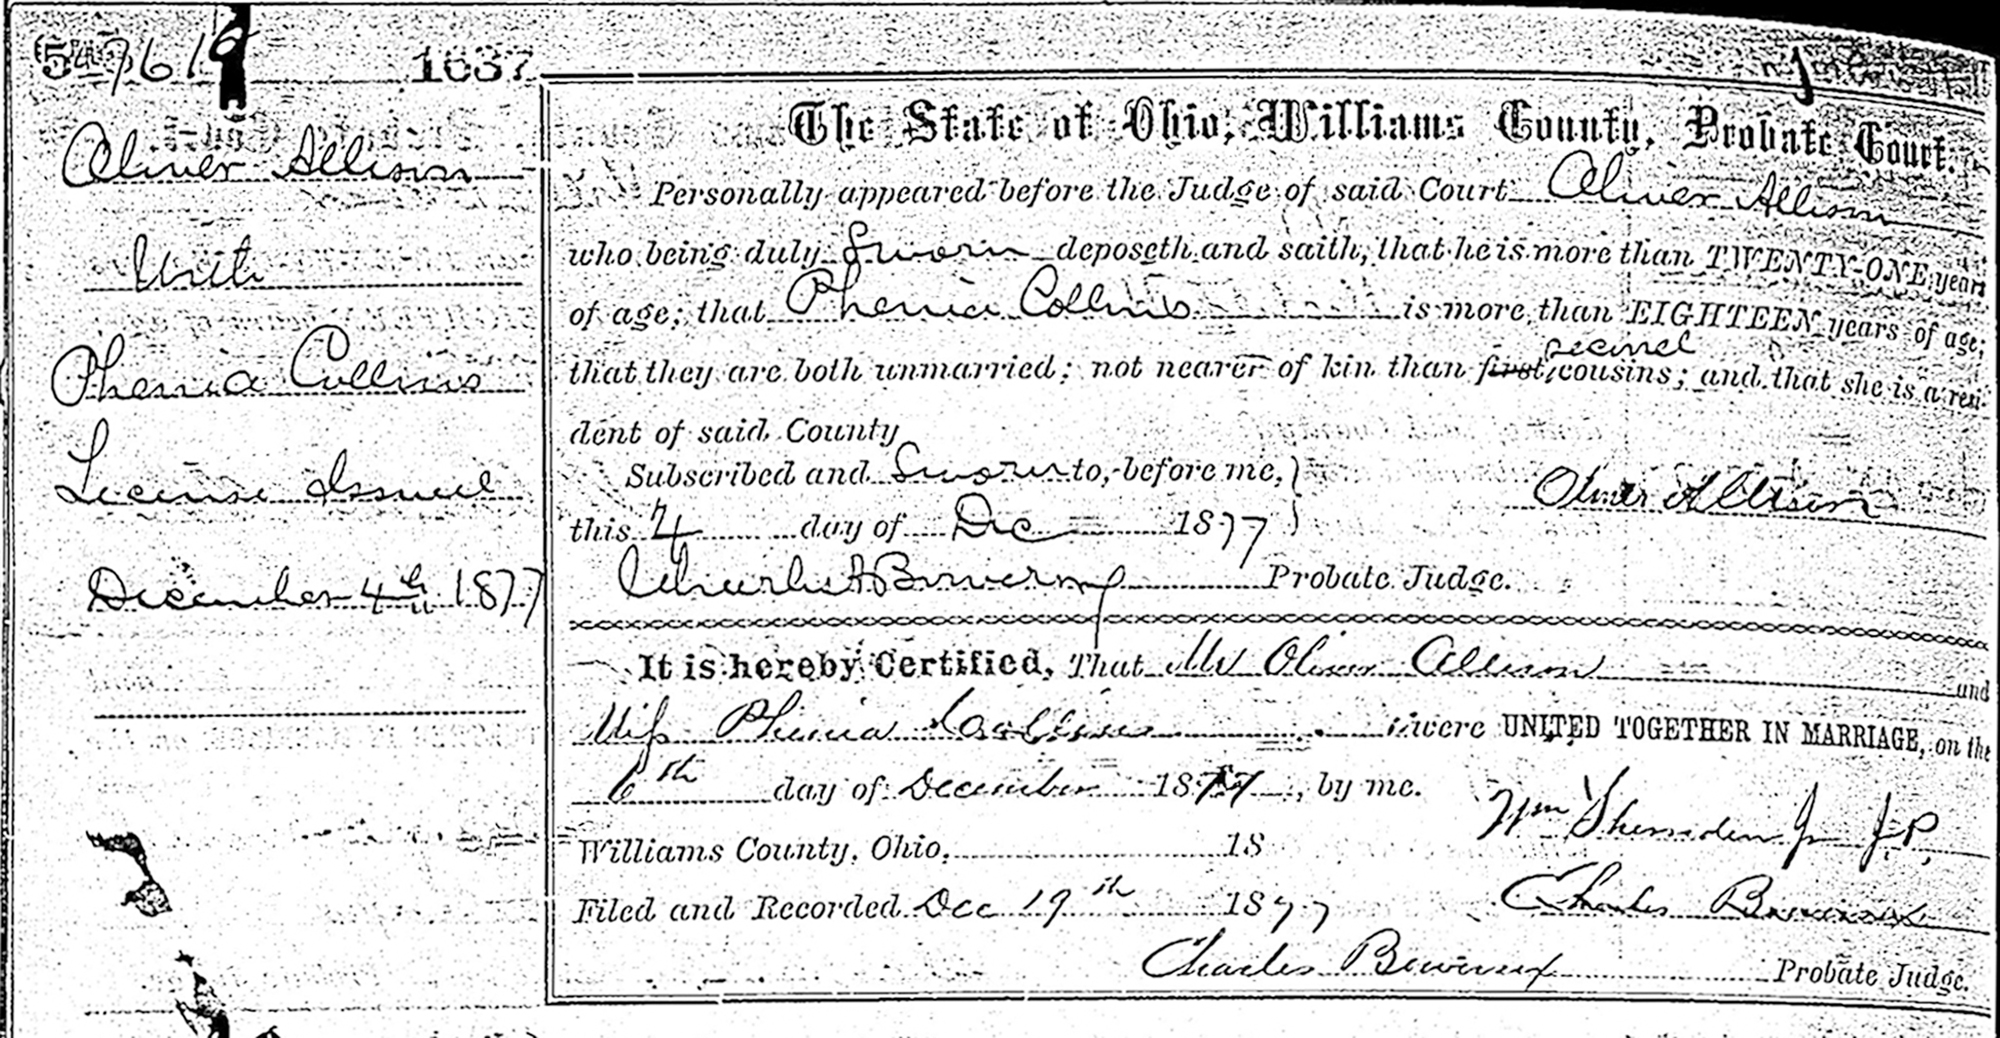 1637
Oliver Allison
with
Phenia Collins
License Issued
December 4th 1877
The State of Ohio, Williams County, Probate Court.
Personally appeared before the Judge of said Court Oliver Allison
who being duly Sworn deposeth and saith, that he is more than TWENTY-ONE years
of age; that Phenia Collins is more than EIGHTEEN years of age;
second
that they are both unmarried; not nearer of kin than first, cousins; and that she is a resi-
dent of said County
Subscribed and Sworn to, before me,
Oliver Allison
this 4 day of Dec 1877
Probate Judge.
It is hereby Certified, That Mr Oliver Allison and
Miss Phenia Collins were UNITED TOGETHER IN MARRIAGE, on the
6th day of December 1877, by me.
Wm Sherriden Jr J.P.
Williams County, Ohio, 18
Filed and Recorded Dec 19th 1877
Charles
Charles Probate Judge.